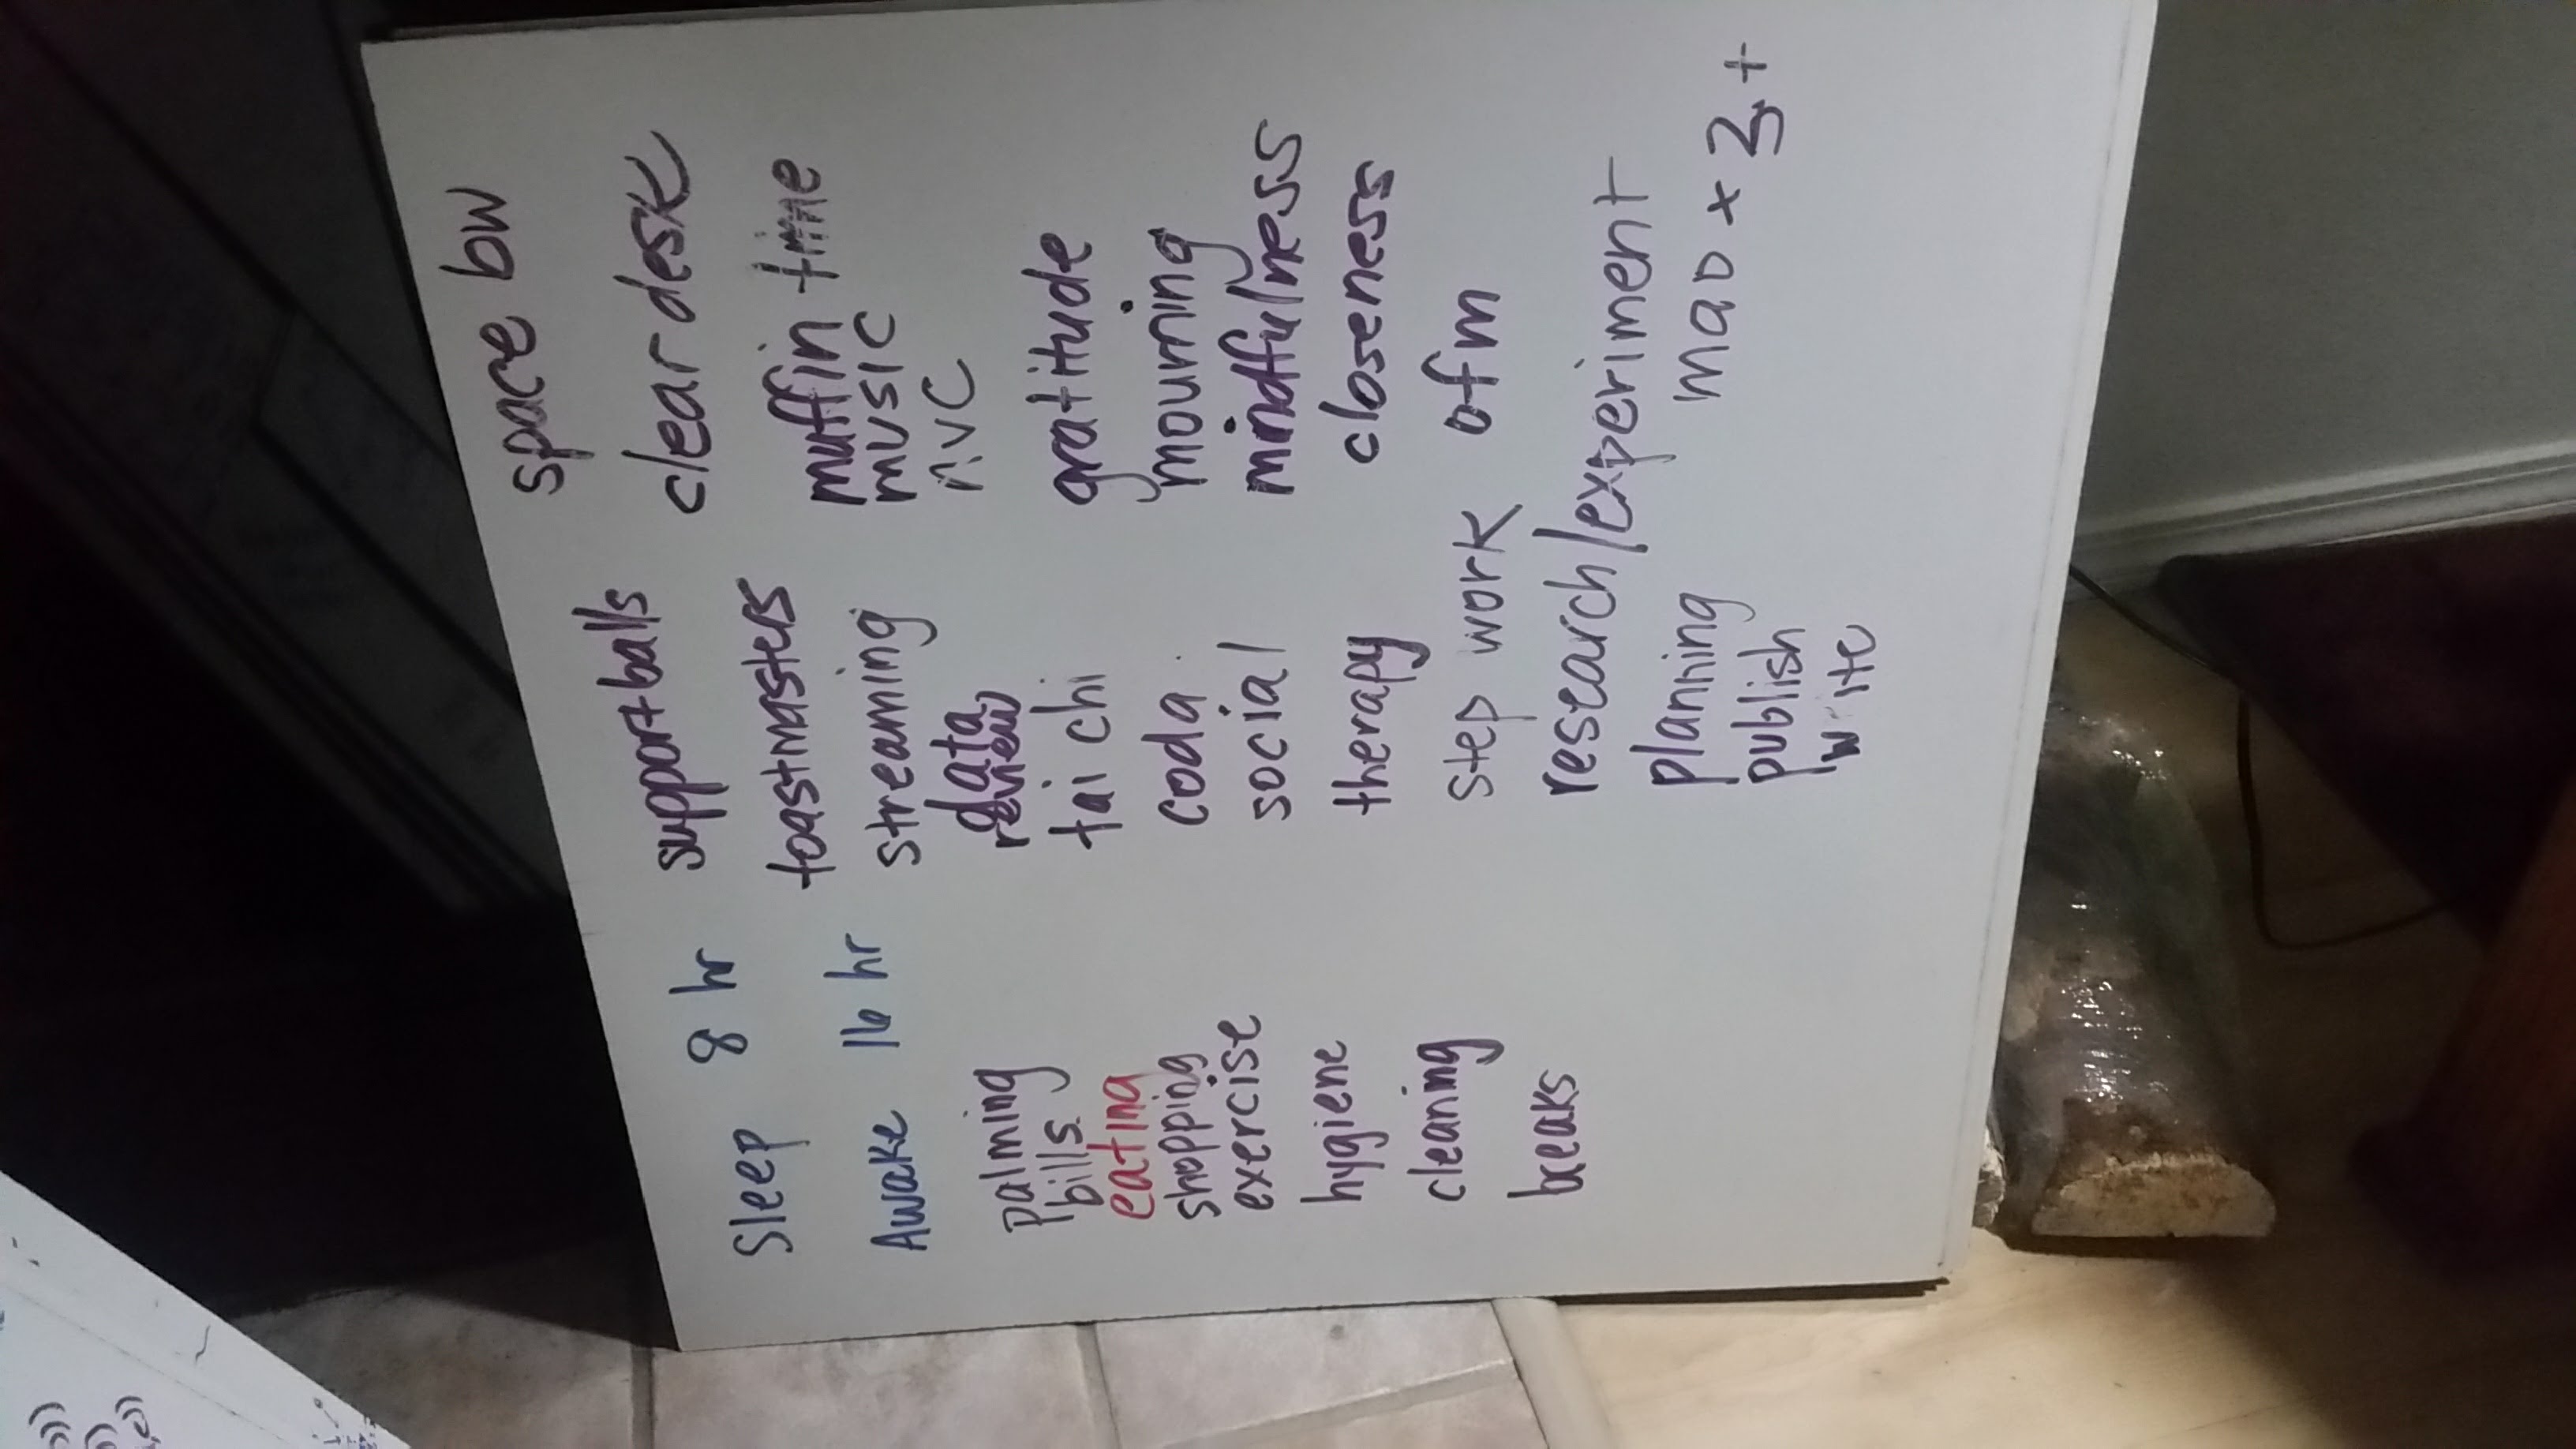 Sleep 8 hr
Awake 16 hr
palming
bills
eating
shopping
exercise
hygiene
cleaning
breaks
support balls
toastmasters
streaming
data
review
tai chi
coda
social
therapy
step work
research/experiment
planning
publish
write
space bw
clear desk
muffin time
music
nvc
gratitude
mourning
mindfulness
closeness
ofm